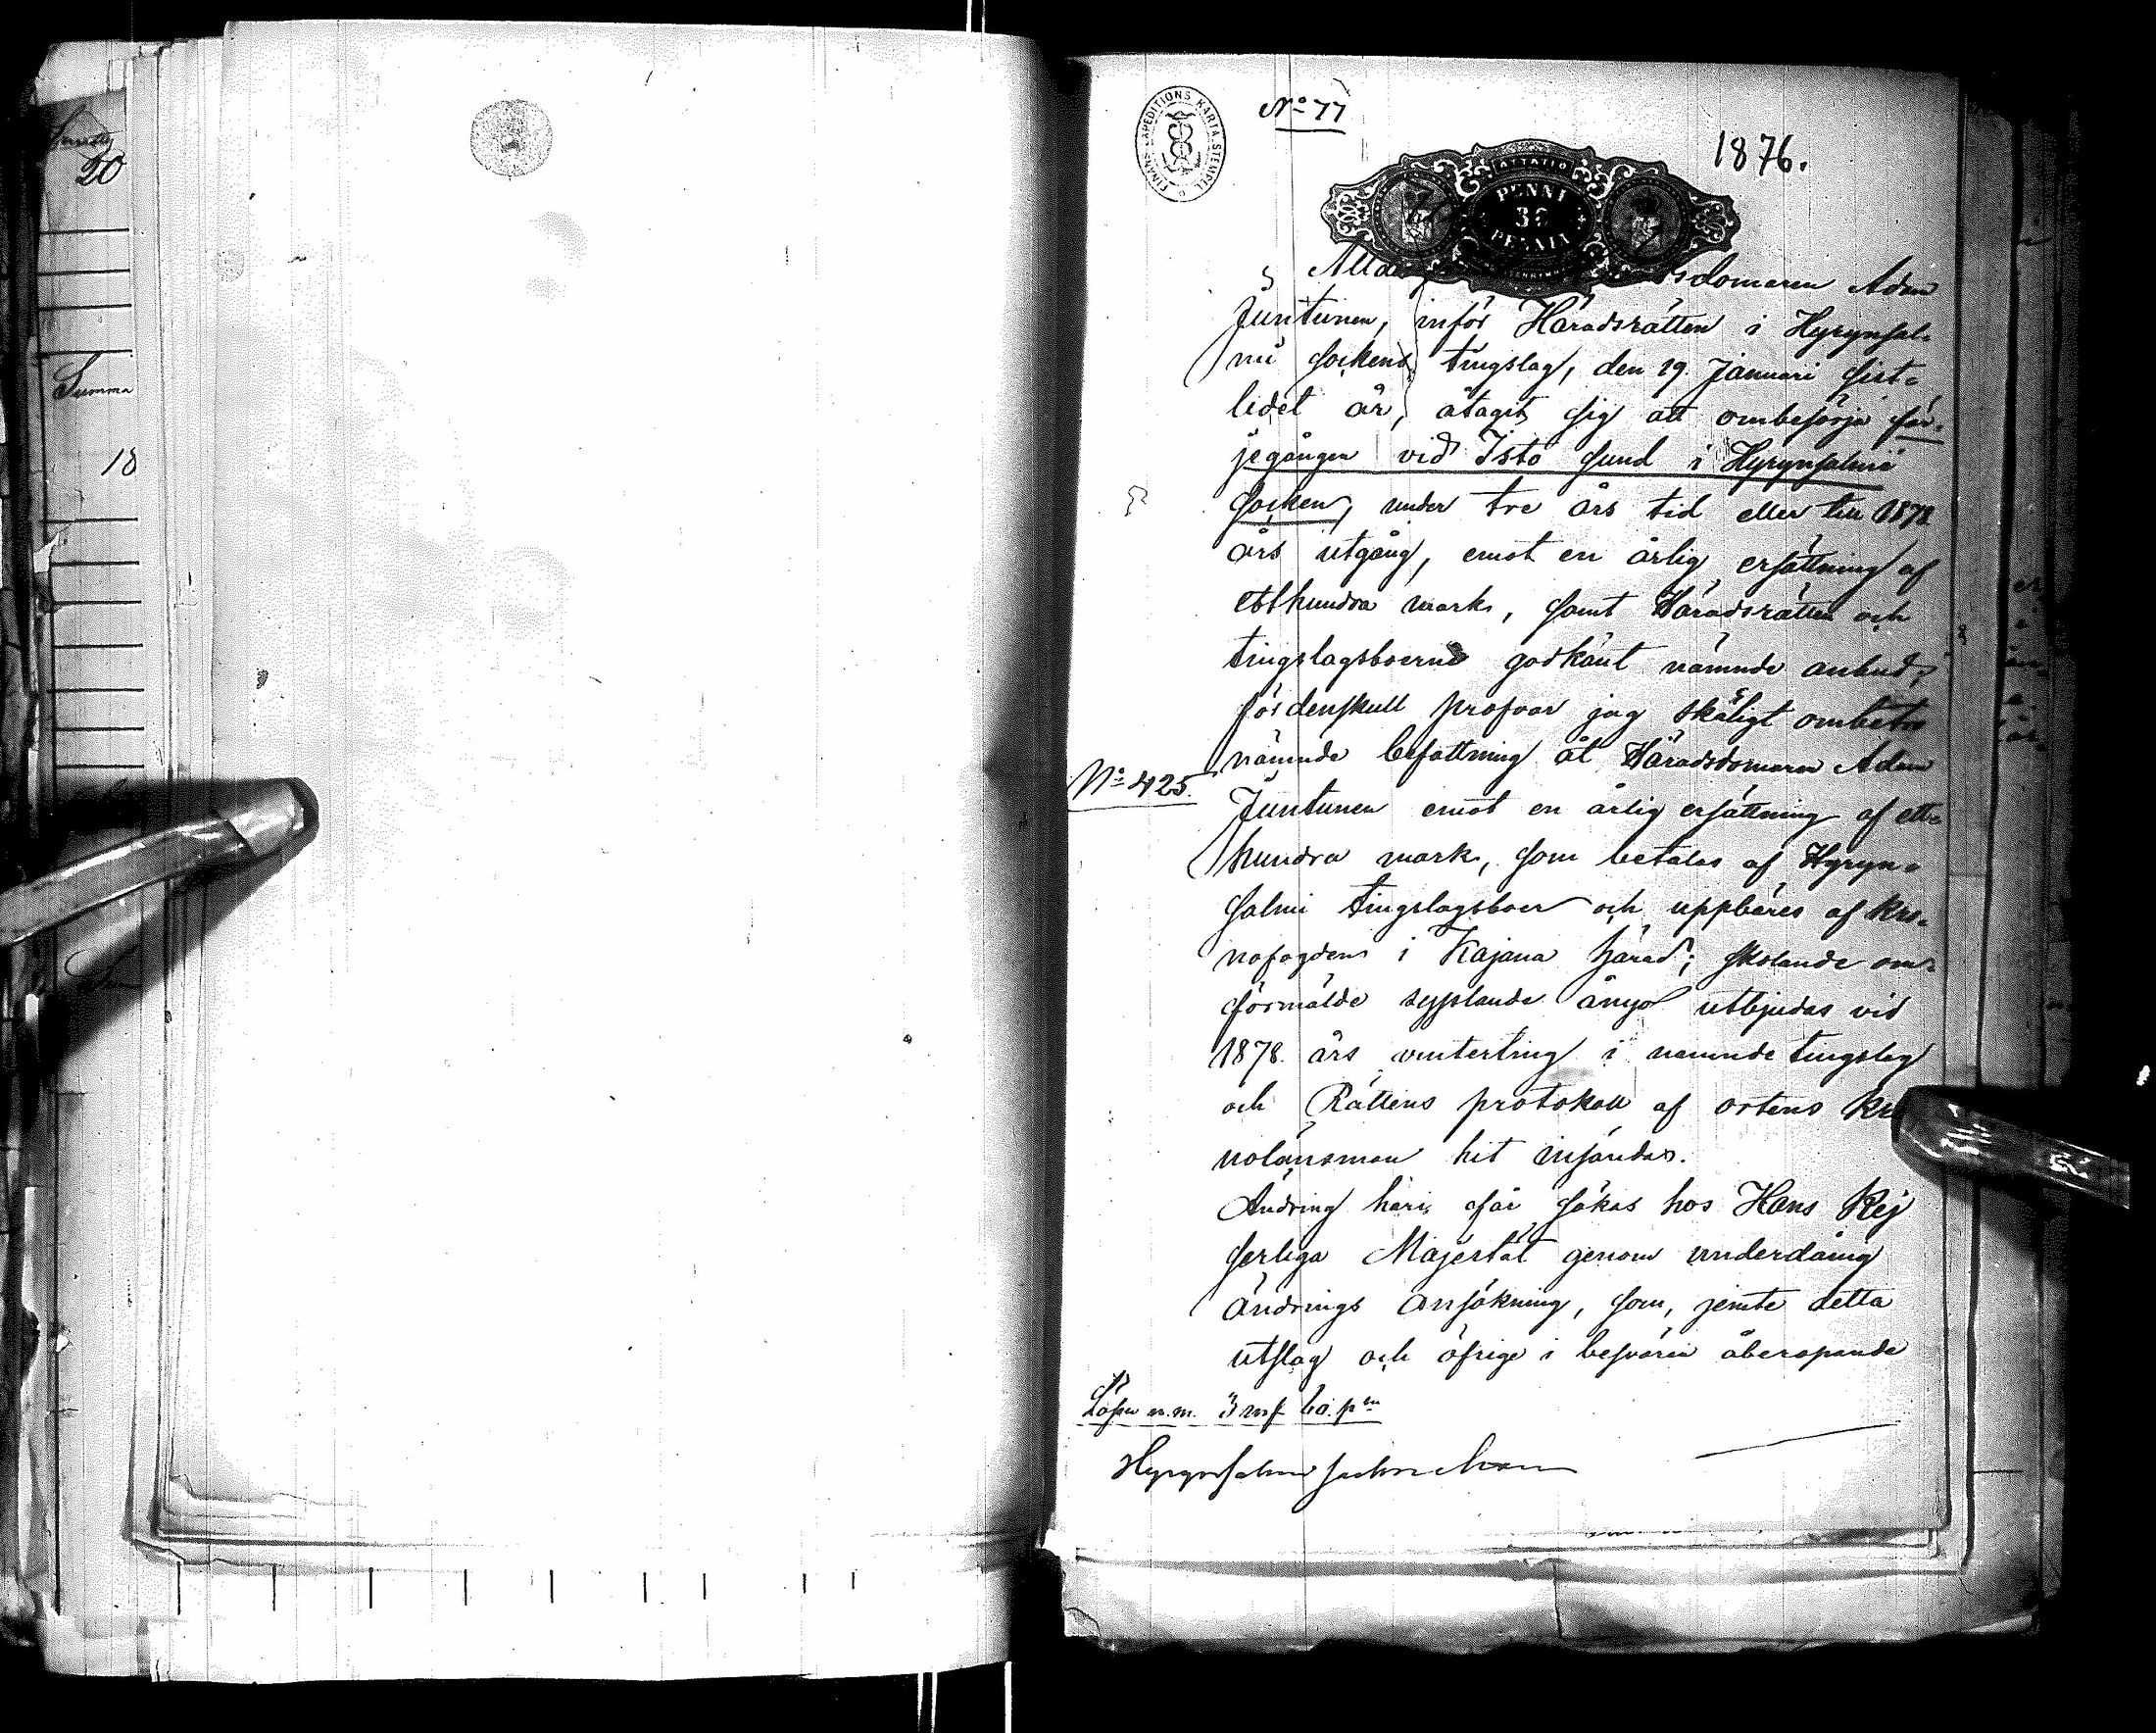 Summa
20
Summa
18
FINANS EXPEDITIONS KARTA STEMPEL
No 77
1876.
PENNI
PENNIÄ
domaren Adam
Juntunen, inför Häradsrätten i Hyrynsal-
mi sockens tingslag, den 29. Januari sist-
lidet år, åtagit sig att ombesörja fär-
jegången vid Isto sund i Hyrynsalmi
socken, under tre års tid eller till 1878
års utgång, emot en årlig ersättning af
etthundra mark, samt Häradsrätten och
tingslagsboerne godkänt nämnde anbud;
fördenskull pröfvar jag skäligt ombetro
nämnde befattning åt Häradsdomaren Adam
No 425.
Juntunen emot en årlig ersättning af ett-
hundra mark, som betalas af Hyryn-
salmi tingslagsboer och uppbäres af kro-
nofogden i Kajana härad; skolande om-
förmälde sysslande ånyo utbjudas vid
1878. års vinterting i nämnde tingslag
och Rättens protokoll af ortens kro
nolänsman hit insändas.
Ändring häri får sökas hos Hans Kej
serliga Majestät genom underdånig
ändrings ansökning, som, jemte detta
utslag och öfrige i besvären åberopande
Lösen m.m. 3 mf 60. pni
Hyrynsalmi